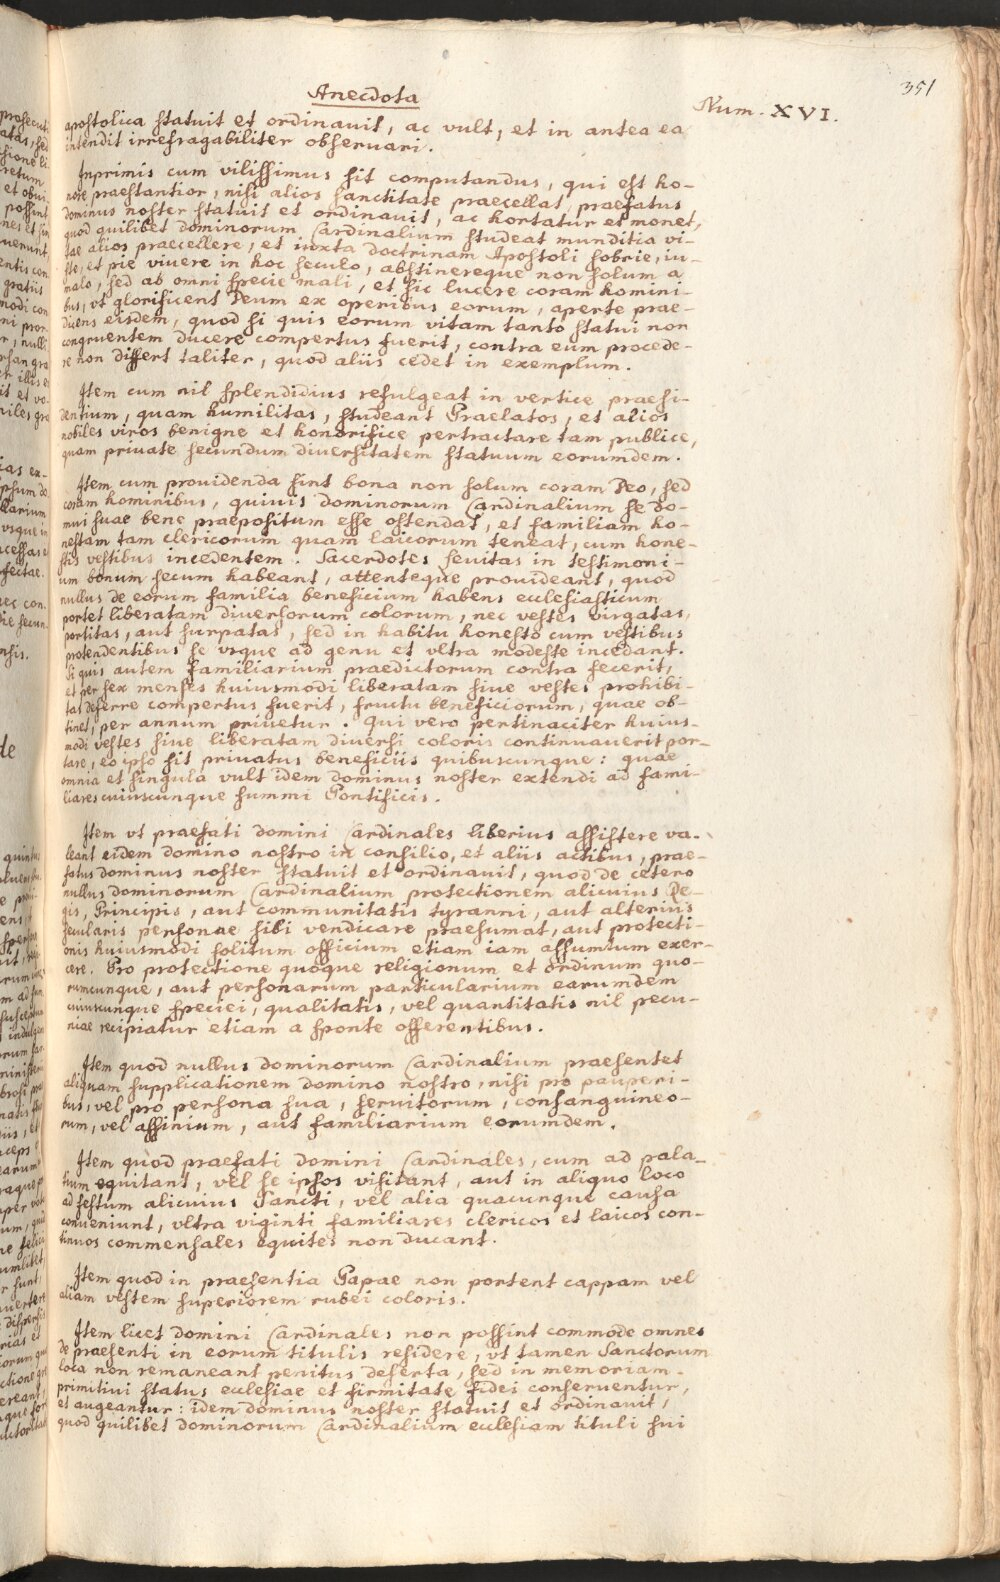 351
Anecdota
Num. XVI.
apostolica statuit et ordinauit, ac vult, et in antea ea
intendit irrefragabiliter obseruari.
Inprimis cum vilissimus sit computandus, qui est ho-
nore praestantior, nisi alios sanctitate praecellat, praefatus
dominus noster statuit et ordinauit, ac hortatur et monet,
quod quilibet dominorum Cardinalium studeat munditia vi-
tae alios praecellere, et iuxta doctrinam Apostoli sobrie, iu-
ste, et pie viuere in hoc seculo, abstinereque non solum a
malo, sed ab omni specie mali, et sic lucere coram homini-
bus, vt glorificent Deum ex operibus eorum, aperte prae-
dicens eisdem, quod si quis eorum vitam tanto statui non
congruentem ducere compertus fuerit, contra eum procede-
re non differt taliter, quod aliis cedet in exemplum.
Item cum nil splendidius refulgeat in vertice praesi-
dentium, quam humilitas, studeant Praelatos, et alios
nobiles viros benigne et honorifice pertractare tam publice,
quam priuate secundum diuersitatem statuum eorumdem.
Item cum prouidenda sint bona non solum coram Deo, sed
coram hominibus, quiuis dominorum Cardinalium se do-
mui suae bene praepositum esse ostendat, et familiam ho-
nestam tam clericorum quam laicorum teneat, cum hone-
stis vestibus incedentem. Sacerdotes seuitas in testimoni-
um bonum secum habeant, attenteque prouideant, quod
nullus de eorum familia beneficium habens ecclesiasticum
portet liberatam diuersorum colorum, nec vestes virgatas,
partitas, aut surpatas, sed in habitu honesto cum vestibus
protendentibus se vsque ad genu et vltra modeste incedant.
Si quis autem familiarium praedictorum contra fecerit,
et per sex menses huiusmodi liberatam siue vestes prohibi-
tas deferre compertus fuerit, fructu beneficiorum, quae ob-
tinet, per annum priuetur. Qui vero pertinaciter huius-
modi vestes siue liberatam diuersi coloris continuauerit por-
tare, eo ipso sit priuatus beneficiis quibuscunque: quae
omnia et singula vult idem dominus noster extendi ad fami-
liares cuiuscunque summi Pontificis.
Item vt praefati domini Cardinales liberius assistere va-
leant eidem domino nostro in consilio, et aliis actibus, prae-
fatus dominus noster statuit et ordinauit, quod de cetero
nullus dominorum Cardinalium protectionem alicuius Re-
gis, Principis, aut communitatis tyranni, aut alterius
secularis personae sibi vendicare praesumat, aut protecti-
onis huiusmodi solitum officium etiam iam assumtum exer-
cere. Pro protectione quoque religionum et ordinum quo-
rumcunque, aut personarum particularium earumdem
cuiuscunque speciei, qualitatis, vel quantitatis nil pecu-
niae recipiatur etiam a sponte offerentibus.
Item quod nullus dominorum Cardinalium praesentet
aliquam supplicationem domino nostro, nisi pro pauperi-
bus, vel pro persona sua, seruitorum, consanguineo-
rum, vel affinium, aut familiarium eorumdem.
Item quod praefati domini Cardinales, cum ad pala-
tium equitant, vel se ipsos visitant, aut in aliquo loco
ad festum alicuius Sancti, vel alia quacunque causa
conueniunt, vltra viginti familiares clericos et laicos con-
tinuos commensales equites non ducant.
Item quod in praesentia Papae non portent cappam vel
aliam vestem superiorem rubei coloris.
Item licet domini Cardinales non possint commode omnes
de praesenti in eorum titulis residere, vt tamen Sanctorum
loca non remaneant penitus deserta, sed in memoriam
primitiui status ecclesiae et firmitate fidei conseruentur,
et augeantur: idem dominus noster statuit et ordinauit,
quod quilibet dominorum Cardinalium ecclesiam tituli sui